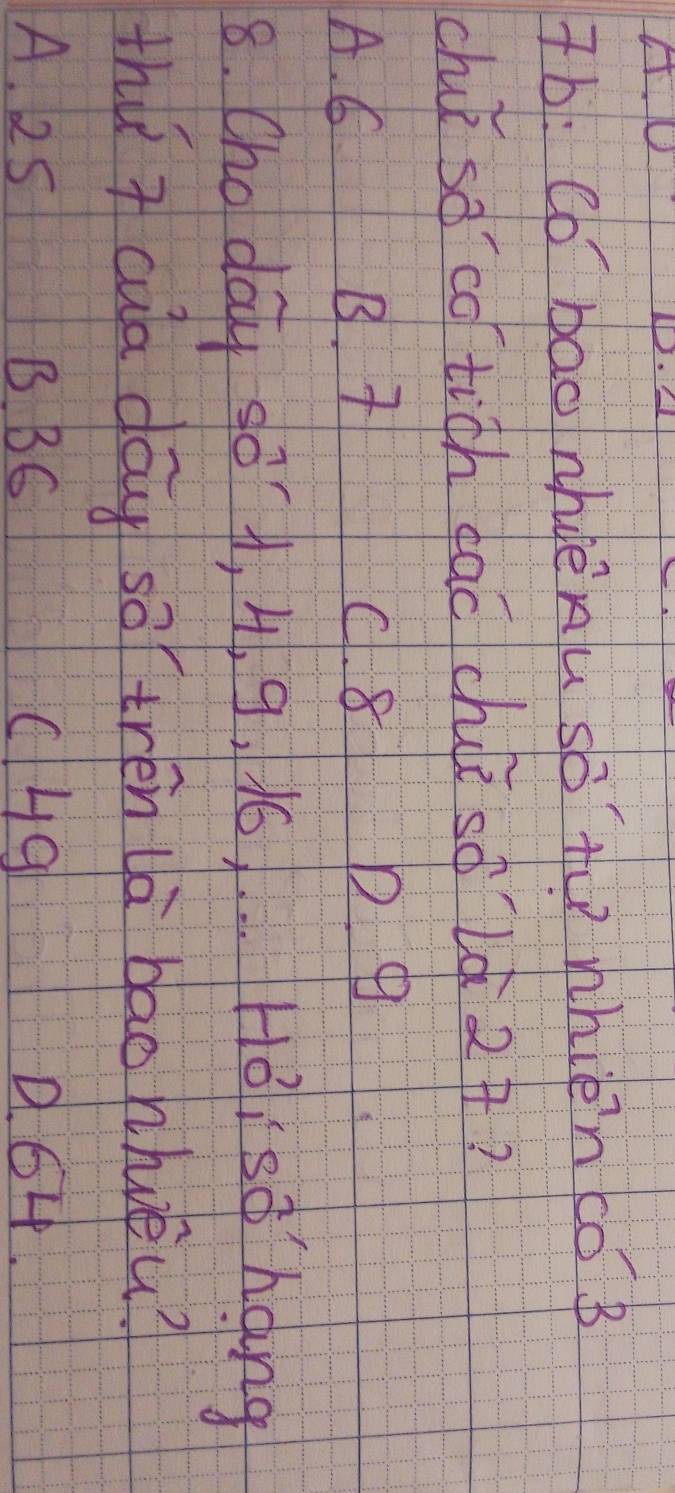 7b: Có bao nhiêu số tự nhiên có 3
chữ số có tích các chữ số là 27?
A. 6 B. 7 C. 8 D. 9
8. Cho dãy số 1, 4, 9, 16, ... Hỏi số hạng
thứ 7 của dãy số trên là bao nhiêu?
A. 25 B. 36 C. 49 D. 64.